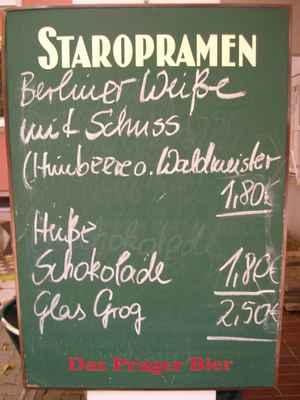 STAROPRAMEN
Berliner Weiße
mit Schuss
(Himbeere o. Waldmeister
1,80€
Heiße
Schokolade 1,80€
Glas Grog 2,50€
Das Prager Bier